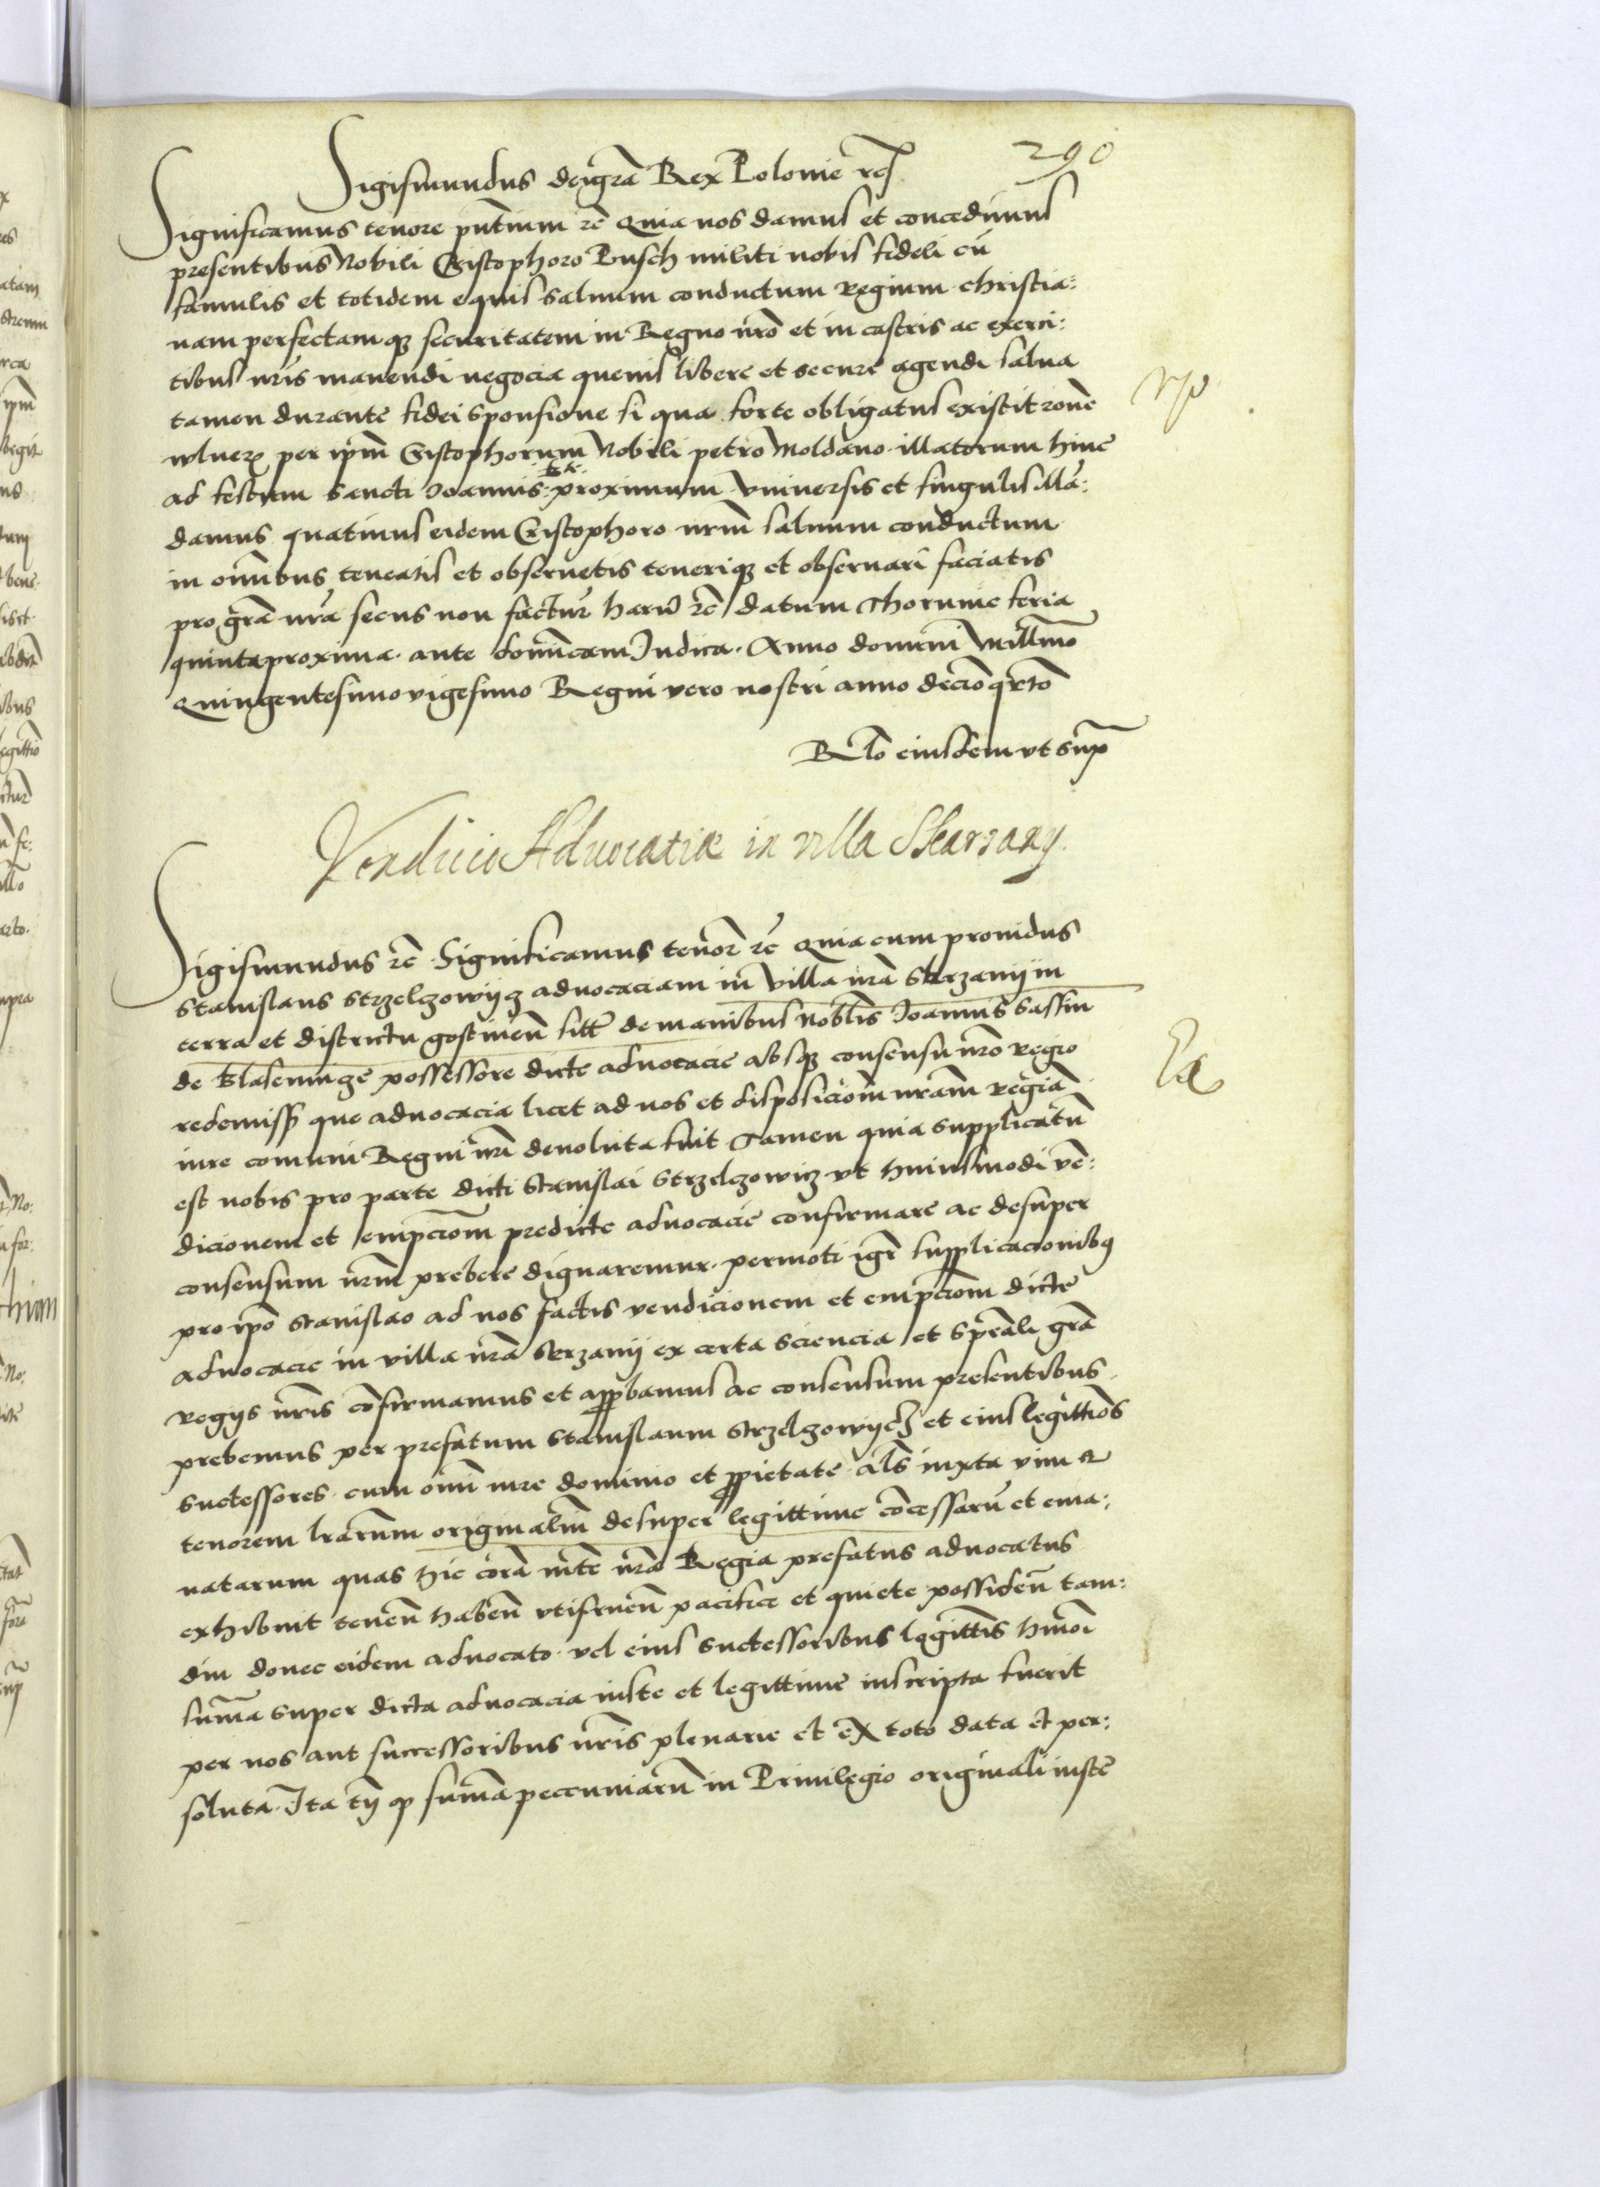 290
Sigismundus dei grã Rex Polonie rc̃
Significamus tenore pñtium rc̃ Quia nos damus et concedimus
presentibus Nobili Cristophoro Pusch militi nobis fideli cũ
famulis et totidem equis salvum conductum regium christia:
nam perfectamqz securitatem in Regno nr̃o et in castris ac exerci:
tibus nr̃is manendi negocia quevis libere et secure agendi salva
tamen durante fidei sponsione si qua forte obligatus existit rõne
wlner per ipm̃ Cristophorum Nobili petro Moldano illatorum hinc
ad festum sancti Joannis: Ba: proximum Universis et singulis mã:
damus quatinus eidem Cristophoro nrm̃ salvum conductum
in omĩbus teneatis et observetis teneriqz et observari faciatis
pro grã nr̃a secus non factur̃ harũ rc̃ datum Thorunie feria
quinta proxima ante domĩcam Judica Anno domini Millm̃o
Quingentesimo vigesimo Regni vero nostri anno decĩo qrto
Rlõ eiusdem ut sup̃
Vendicio Advocatiæ in villa Skarzany
Sigismundus rc̃ Significamus tenor̃ rc̃ Quia cum providus
Stanislaus Strzelczowycz advocaciam in villa nr̃a Skrzanij in
terra et districtu gostineñ sitt̃ de manibus nobl̃is Joannis Sassin
de possessore dicte advocacie absqz consensu nr̃o regio
redemiss̃ que advocacia licet ad nos et disposiciom̃ nr̃am regiã
iure comuni Regni nr̃i devoluta fuit Tamen quia supplicatũ
est nobis pro parte dicti Stanislai Strzelczowicz ut huiusmodi vẽ:
dicionem et empciom̃ predicte advocacie confirmare ac desuper
consensum nrm̃ prebere dignaremur permoti igr̃ supplicacionibus
pro ipõ Stanislao ad nos factis vendicionem et empciom̃ dicte
advocacie in villa nr̃a Skrzanij ex certa sciencia et speãli grã
regijs nr̃is cõfirmamus et approbamus ac consensum presentibus
prebemus per prefatum Stanislaum Strzelczowycz et eius legittios
successores cum om̃i iure dominio et proprietate als̃ iuxta vim et
tenorem lrarum originaliũ desuper legittime cõcessarũ et ema:
natarum quas hic corã mte nr̃a Regia prefatus advocatus
exhibuit teneñ habeñ utifrueñ pacifice et quiete possideñ tam:
diu donec eidem advocato vel eius successoribus legittis hmõi
sum̃a super dicta advocacia iuste et legittime inscripta fuerit
per nos aut successoribus nr̃is plenarie et ex toto data et per:
soluta Ita tñ qp sum̃a peccuniarũ in Privilegio originali iuste